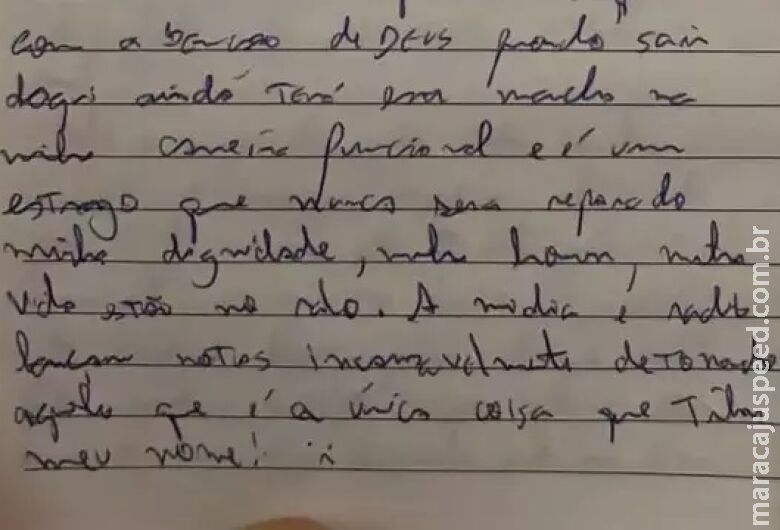 com a benção de DEUS quando sair
daqui ainda Terá essa mancha na
minha carreira funcional e é um
estrago que nunca sera reparado
minha dignidade, minha honra, minha
vida estão no ralo. A midia é
lançam notas detonando
aquilo que é a única coisa que Tinha
meu nome!
maracajuspeed.com.br